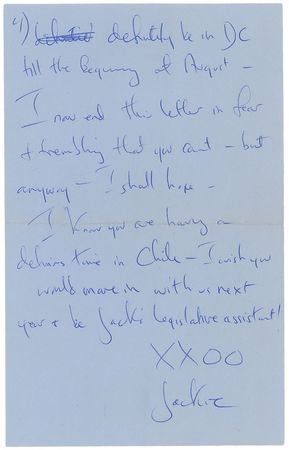 4) definitely be in DC
till the beginning of August –
I now end this letter in fear
& trembling that you can't – but
anyway – I shall hope –
I know you are having a
delirious time in Chile – I wish you
would move in with us next
year & be Jack's legislative assistant!
XXOO
Jackie